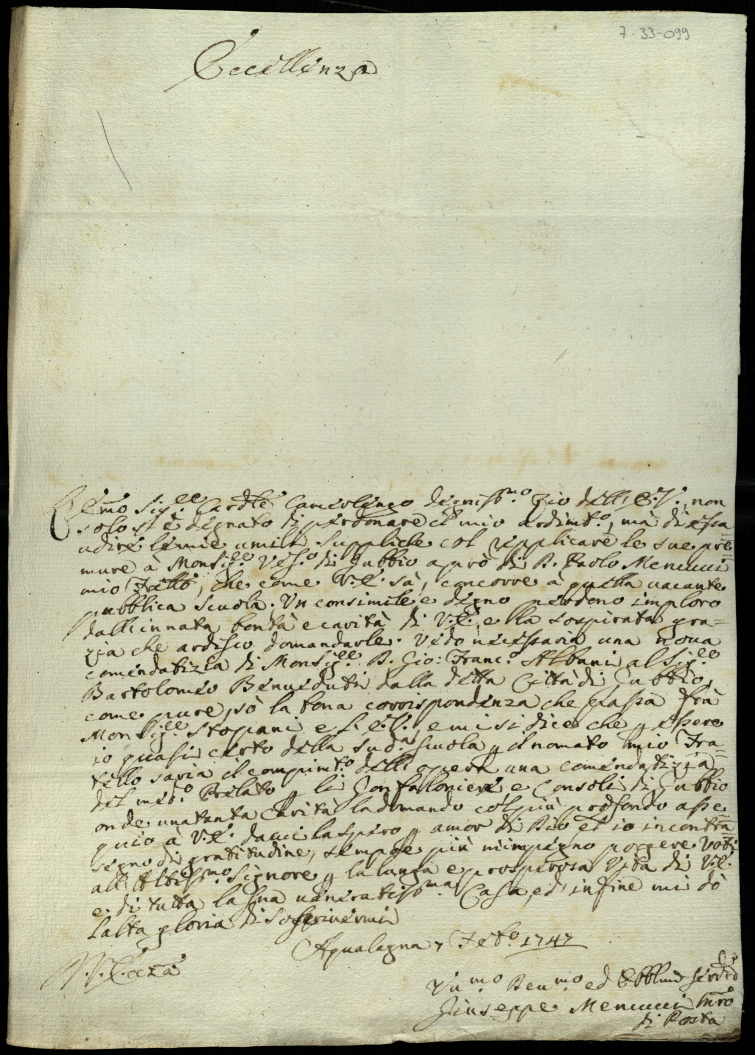 7-33-099
Eccellenza
Emo Sig.re Cardle Camerlengo degniss.mo Zio dell'E.V. non
solo si è degnato di perdonare il mio ardimto, mà di esau-
udire le mie umili suppliche col replicare le sue pre-
mure à Monsig.re Vesc.o di Gubbio a prò di D. Paolo Mencucci
mio Fratello, che come V.E. sà, concorre à questa vacante
pubblica scuola. Un consimile e degno perdono imploro
dall'innata bontà e carità di V.E. e lla sospirata gra-
zia che ardisco domandarle. Vedo necessaria una nuova
comendatizia di Monsig.re D. Gio: Franc.o Albani al Sig.re
Bartolomeo Benveduti dalla detta Città di Gubbio,
come pure, sò la bona corrispondenza che passa frà
Monsig.re Stopani e S.E. e mi si dice che p essere
io quasi certo della sud.a scuola p il nomato mio Fra-
tello saria il compim.to dell'opera una comendatizia
del med.o Prelato p li Confalloniere e Consoli di Gubbio
onde una tanta Carità la domando col più profondo osse-
quio à V.E. da cui la spero p amor di Dio et io in contra-
segno di gratitudine, sempre più m'impegno porgere Voti
all'Altiss.mo Signore p la lunga e prosperosa Vita di V.E.
e di tutta la sua veneratiss.ma Casa, ed in fine mi dò
l'alta gloria di soscrivermi
Aqualagna 7 Feb.o 1747
V. Ecc.za
Um.mo Dev.mo ed Obblmo Servid.e
Giuseppe Mencucci Mro
di Posta